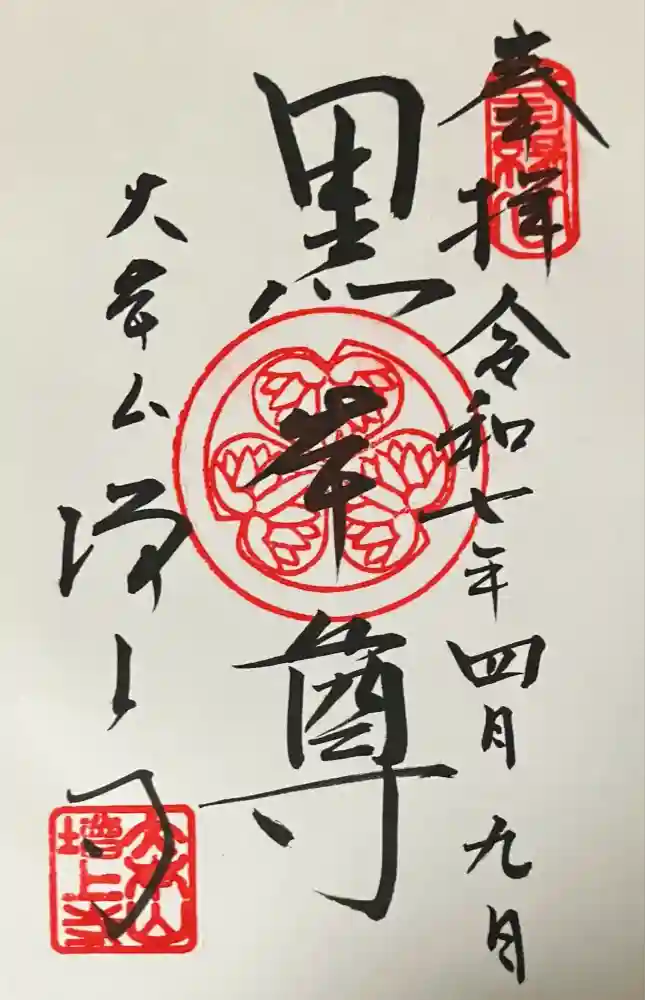 奉拝 令和七年四月九日
黒本尊
大本山 増上寺
大本山
増上寺